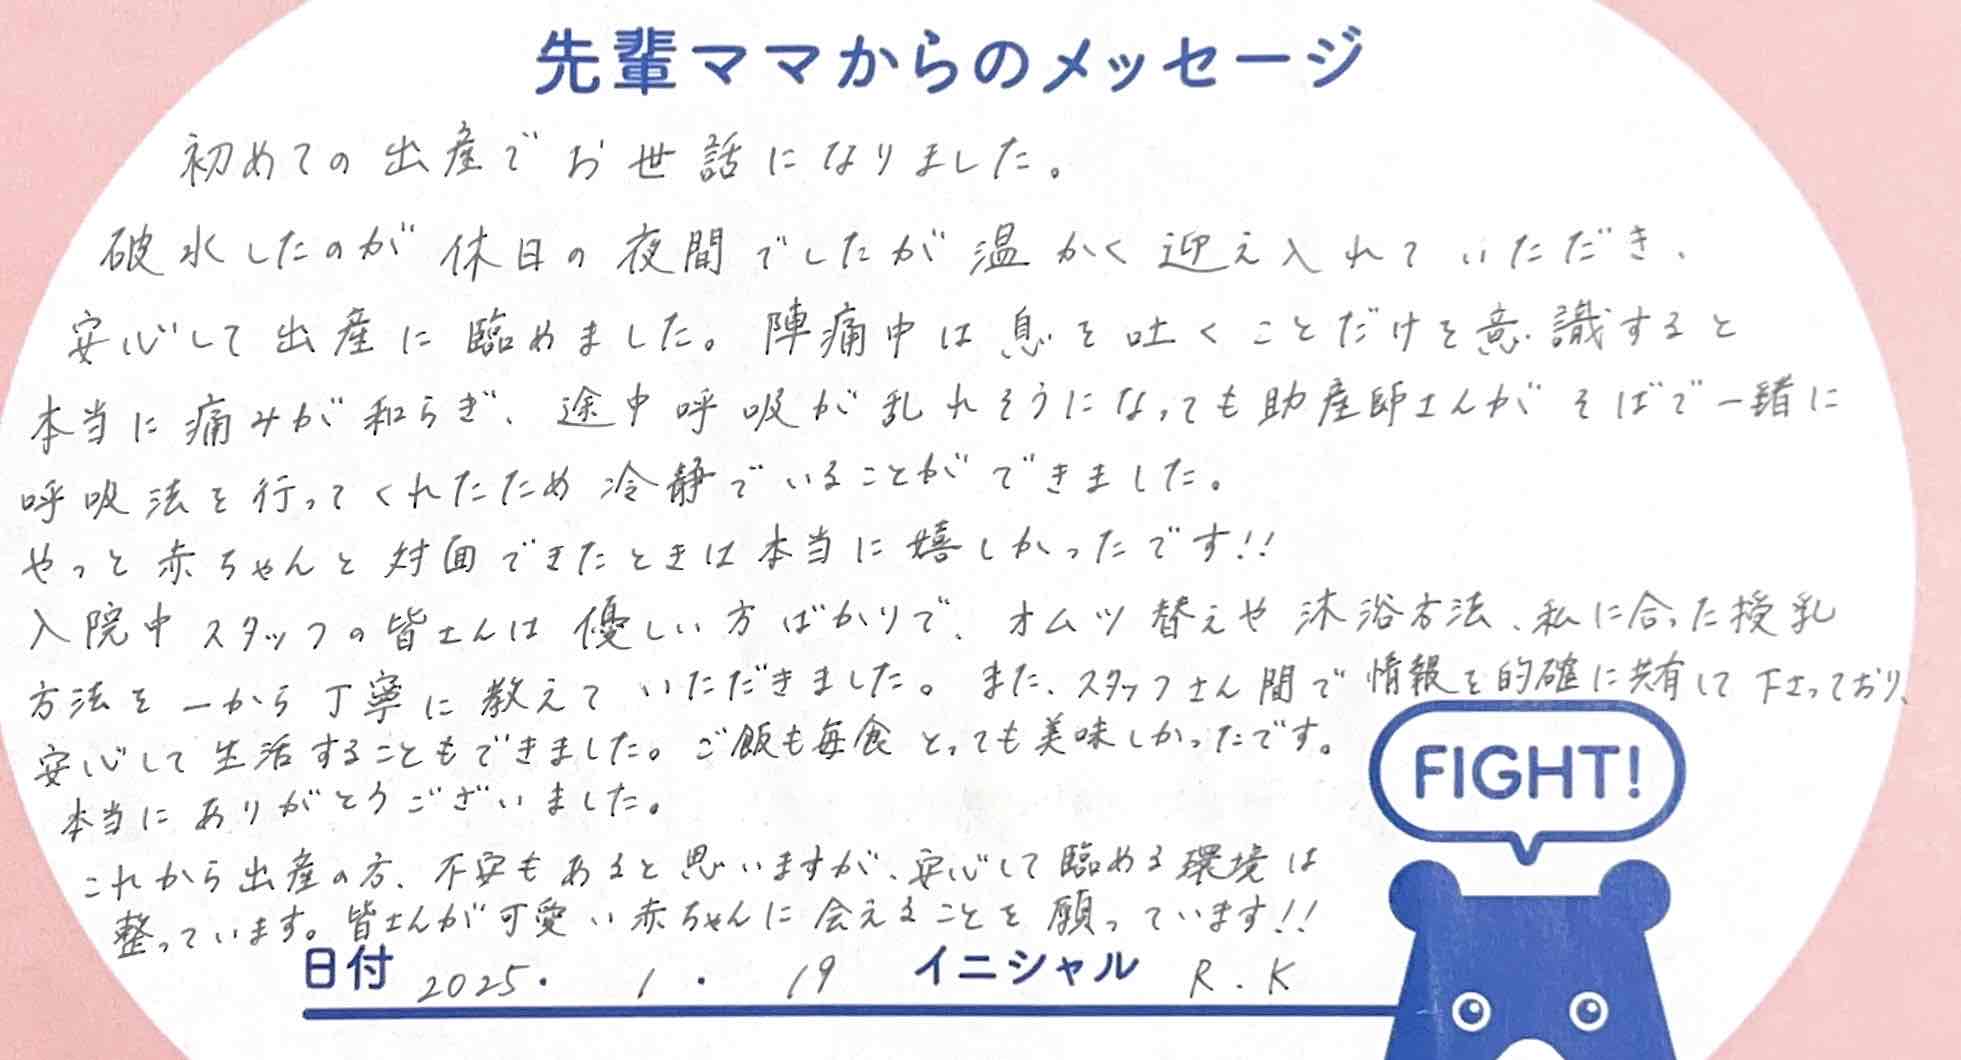 先輩ママからのメッセージ
初めての出産でお世話になりました。
破水したのが休日の夜間でしたが温かく迎え入れていただき、
安心して出産に臨めました。陣痛中は息を吐くことだけを意識すると
本当に痛みが和らぎ、途中呼吸が乱れそうになっても助産師さんがそばで一緒に
呼吸法を行ってくれたため冷静でいることができました。
やっと赤ちゃんと対面できたときは本当に嬉しかったです!!
入院中スタッフの皆さんは優しい方ばかりで、オムツ替えや沐浴方法、私に合った授乳
方法を一から丁寧に教えていただきました。また、スタッフさん間で情報を的確に共有して下さっており、
安心して生活することもできました。ご飯も毎食とっても美味しかったです。
本当にありがとうございました。
これから出産の方、不安もあると思いますが、安心して臨める環境は
整っています。皆さんが可愛い赤ちゃんに会えることを願っています!!
FIGHT!
日付 2025. 1. 19 イニシャル R.K